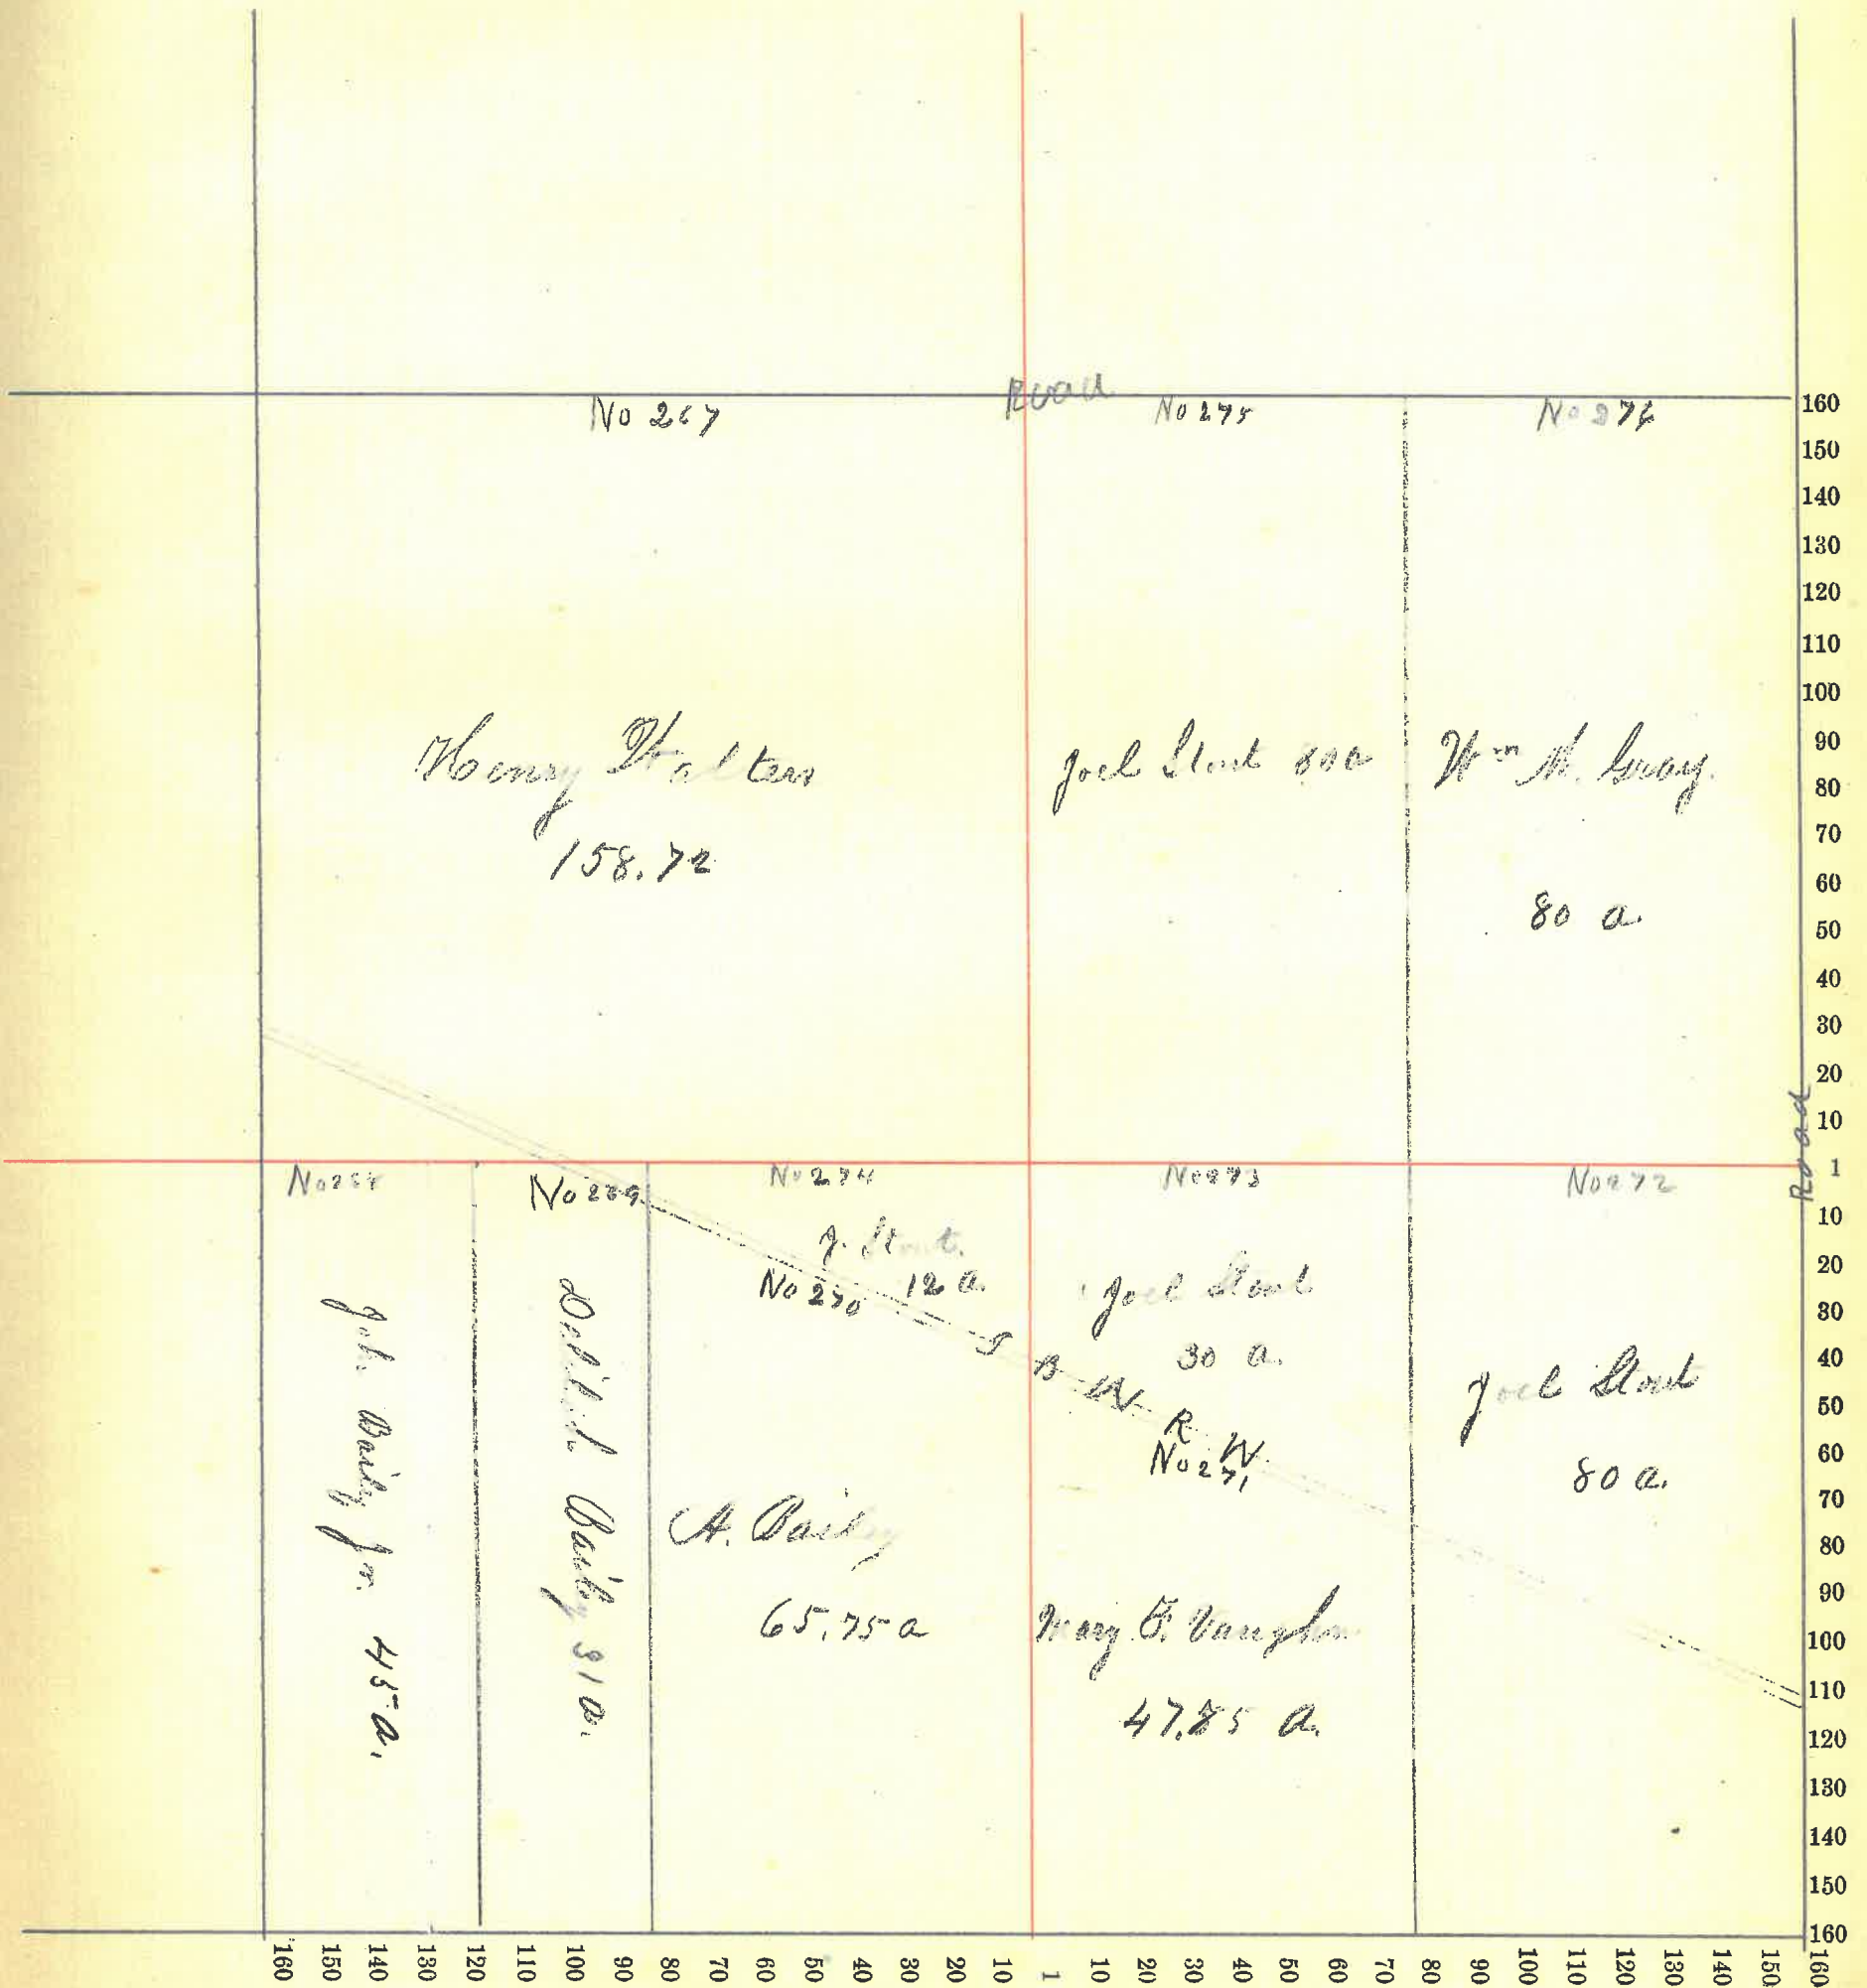 Road
No 267
No 275
No 276
Henry Walters
158.72
Joel Stout 80 a
Wm M. Gray.
80 a.
Road
No 268
No 269
No 274
No 273
No 272
J. Stout.
12 a.
No 270
Joel Stout
30 a.
S B W R W
No 271
Joel Stout
80 a.
Job. Baily Jr. 45 a.
Baily 31 a.
A. Baily
65.75 a
Mary F. Vaughn
47.85 a.
160
150
140
130
120
110
100
90
80
70
60
50
40
30
20
10
1
10
20
30
40
50
60
70
80
90
100
110
120
130
140
150
160
160 150 140 130 120 110 100 90 80 70 60 50 40 30 20 10 1 10 20 30 40 50 60 70 80 90 100 110 120 130 140 150 160